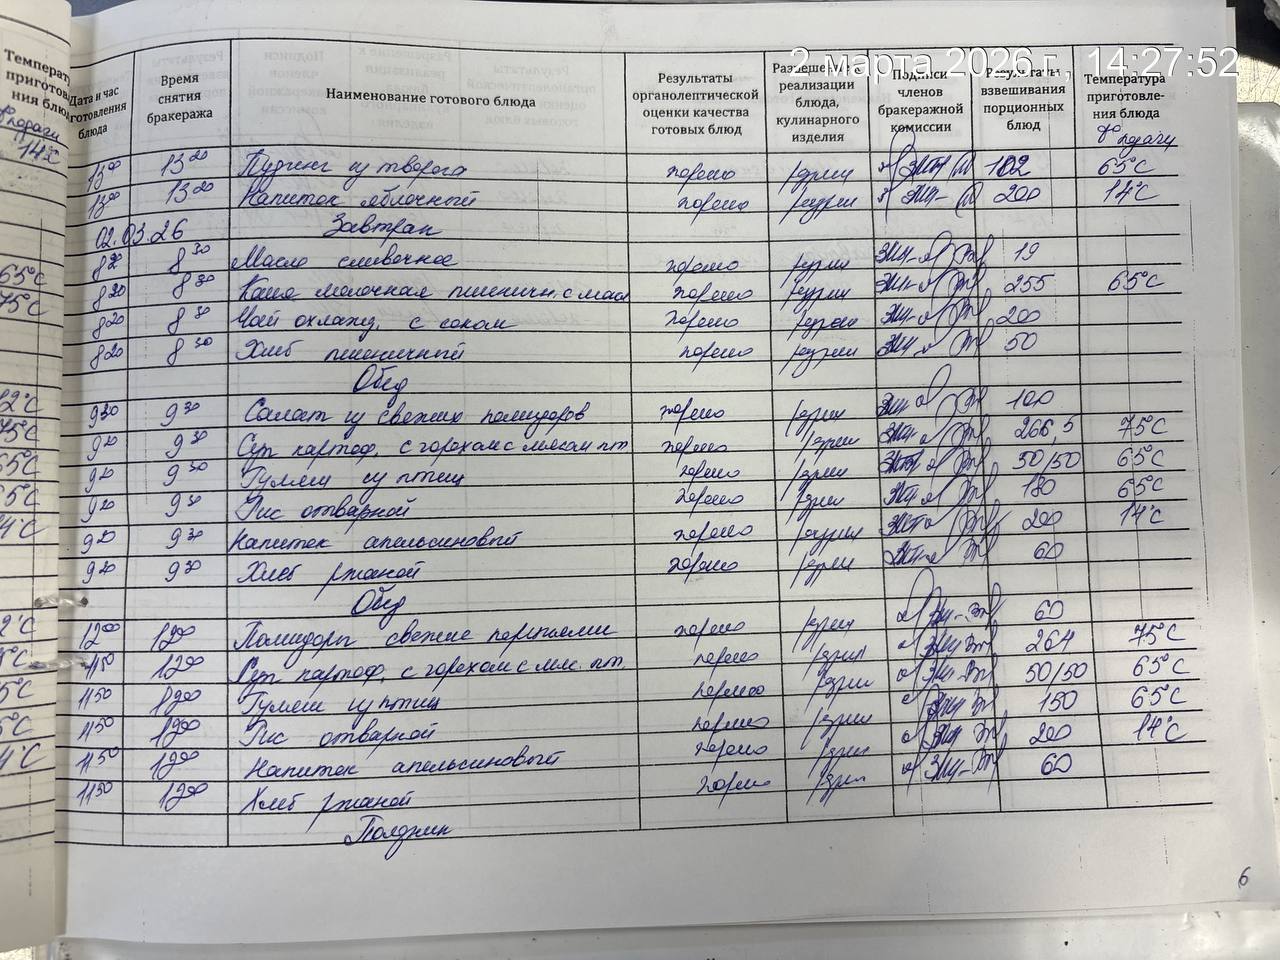 2 марта 2026 г., 14:27:52
Температу
приготов
ния блюд
t° подачи
14°C
Дата и час готовления блюда | Время снятия бракеража | Наименование готового блюда | Результаты органолептической оценки качества готовых блюд | Разрешение реализации блюда, кулинарного изделия | Подписи членов бракеражной комиссии | Результаты взвешивания порционных блюд | Температура приготовле- ния блюда t° подачи
13 00 13 20 Пудинг из творога хорошо разреш 102 65°C
13 00 13 20 Напиток яблочный хорошо разреш 200 14°C
02.03.26 Завтрак
8 20 8 30 Масло сливочное хорошо разреш 19
8 20 8 30 Каша молочная пшеничн. с масл хорошо разреш 255 65°C
8 20 8 30 Чай охлажд. с соком хорошо разреш 200
8 20 8 30 Хлеб пшеничный хорошо разреш 50
Обед
9 20 9 30 Салат из свежих помидоров хорошо разреш 100
9 20 9 30 Суп картоф. с горохом с мясом пт. хорошо разреш 266,5 75°C
9 20 9 30 Гуляш из птиц хорошо разреш 50/50 65°C
9 20 9 30 Рис отварной хорошо разреш 180 65°C
9 20 9 30 Напиток апельсиновый хорошо разреш 200 14°C
9 20 9 30 Хлеб ржаной хорошо разреш 60
Обед
12 00 12 00 Помидоры свежие порциями хорошо разреш 60
11 50 12 00 Суп картоф. с горохом с мяс. пт. хорошо разреш 264 75°C
11 50 12 00 Гуляш из птиц хорошо разреш 50/50 65°C
11 50 12 00 Рис отварной хорошо разреш 150 65°C
11 50 12 00 Напиток апельсиновый хорошо разреш 200 14°C
11 50 12 00 Хлеб ржаной хорошо разреш 60
Полдник
6